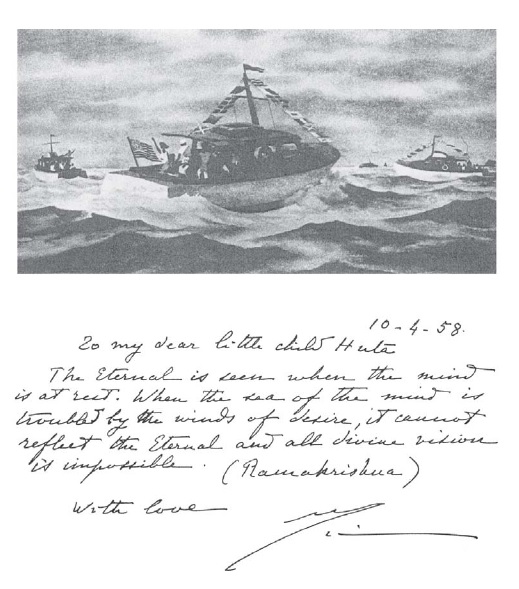 10-4-58.
To my dear little child Huta
The Eternal is seen when the mind
is at rest. When the sea of the mind is
troubled by the winds of desire, it cannot
reflect the Eternal and all divine vision
is impossible. (Ramakrishna)
With love